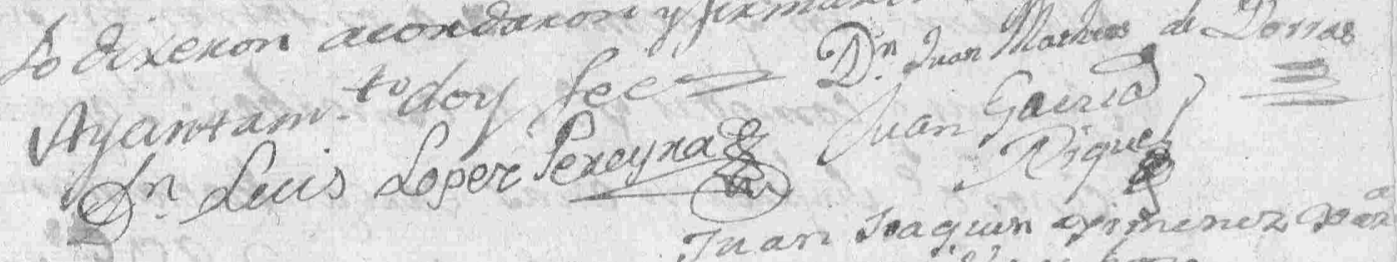 Lo dixeron acordaron y firmaron
Ayuntam.to doy fee
Dn. Juan Matheos de Porras
Dn. Luis Lopez Pereyra
Juan Garcia
Riquez
Juan Joaquin Ximenez